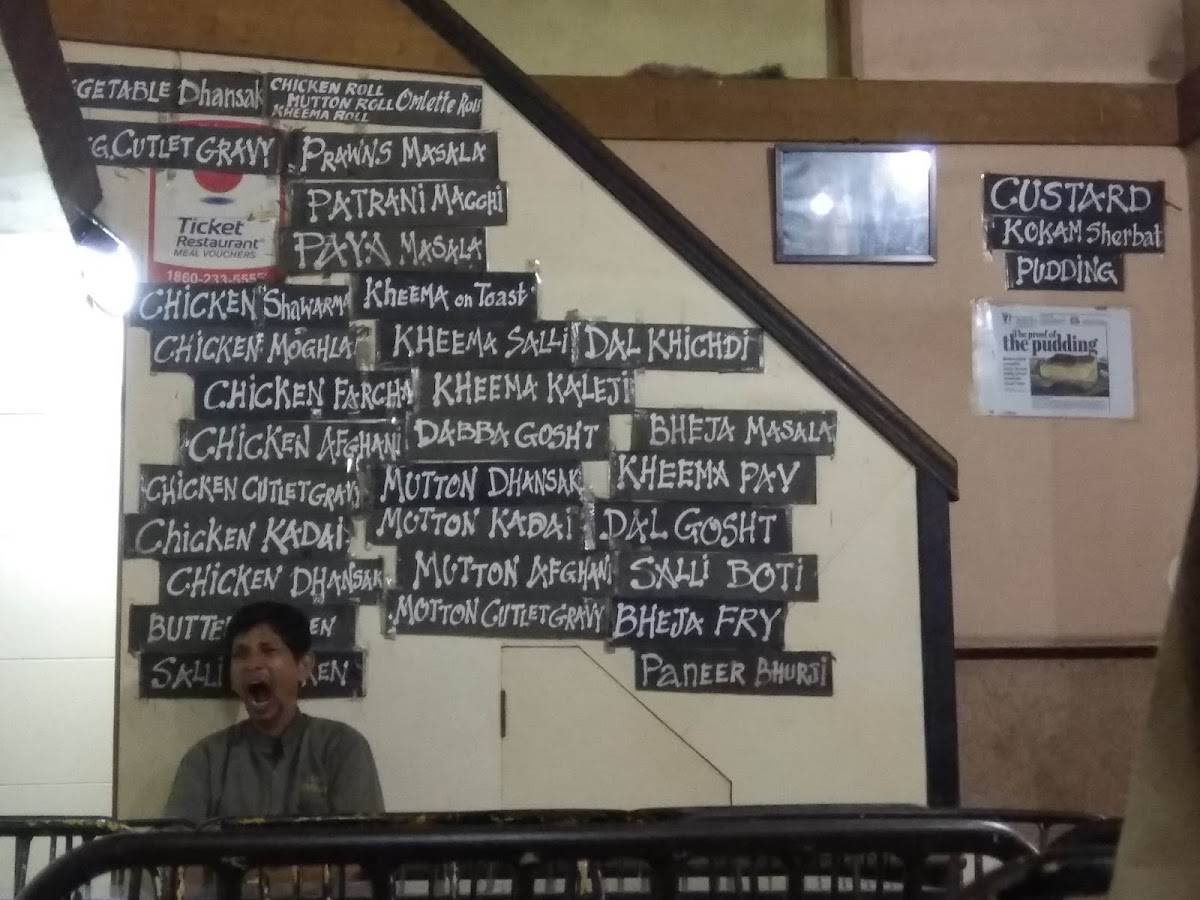 GETABLE Dhansak
CHICKEN ROLL
MUTTON ROLL Omlette Roll
KHEEMA ROLL
G. CUTLET GRAVY
PRAWNS MASALA
PATRANI MACCHI
PAYA MASALA
Ticket
Restaurant®
MEAL VOUCHERS
1860-233-5555
CHICKEN Shawarma
CHICKEN MOGHLA
CHICKEN FARCHA
CHICKEN AFGHANI
CHICKEN CUTLET GRAVY
Chicken KADAI
CHICKEN DHANSAK
BUTTE EN
SALLI KEN
Kheema on Toast
KHEEMA SALLI
KHEEMA KALEJI
DABBA GOSHT
MUTTON DHANSAK
MUTTON KADAI
MUTTON AFGHANI
MOTTON CUTLET GRAVY
DAL KHICHDI
BHEJA MASALA
KHEEMA PAV
DAL GOSHT
SALLI BOTI
BHEJA FRY
PANEER BHURJI
CUSTARD
KOKAM Sherbat
PUDDING
The proof of
the pudding